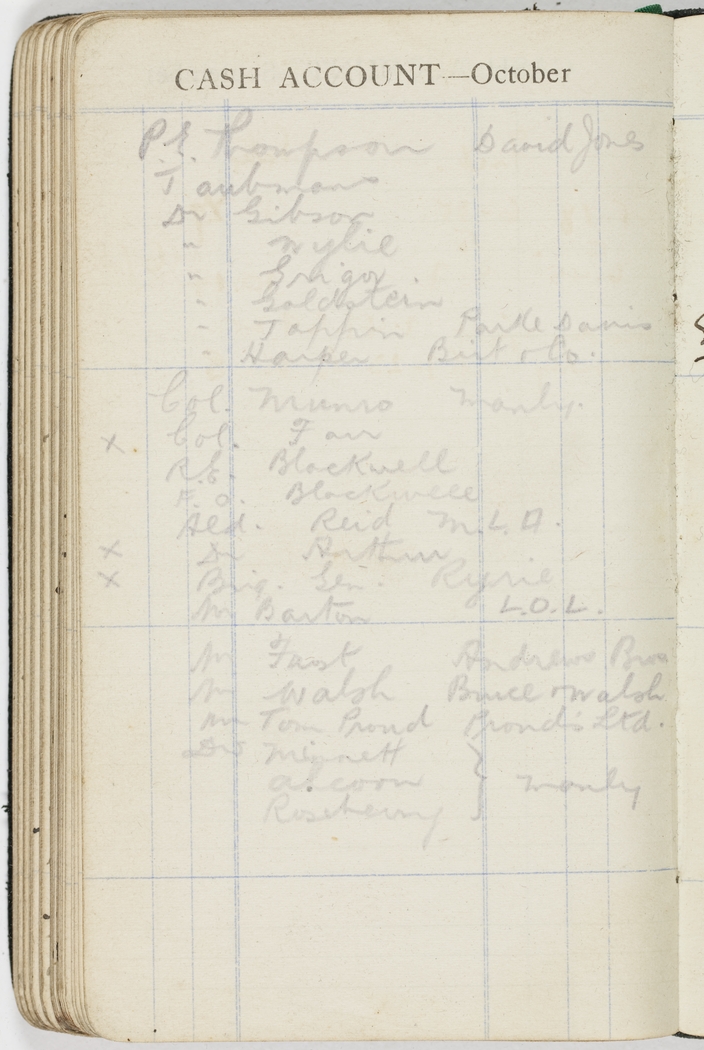 CASH ACCOUNT—October
P.E. Thompson David Jones
Taubmans
Dr Gibson
" Wylie
" Grigor
" Goldstein
" Tappin Parke Davis
" Harper Birt & Co.
Col. Munro Manly.
x Col. Farr
R.E. Blackwell
F.O. Blackwell
Ald. Reid M.L.A.
x Dr Arthur
x Brig. Gen. Ryrie
Mr Barton L.O.L.
Mr Fast Andrews Bros
Mr Walsh Bruce & Walsh
Mr Tom Proud Prouds Ltd.
Drs Minnett
Alcorn } Manly